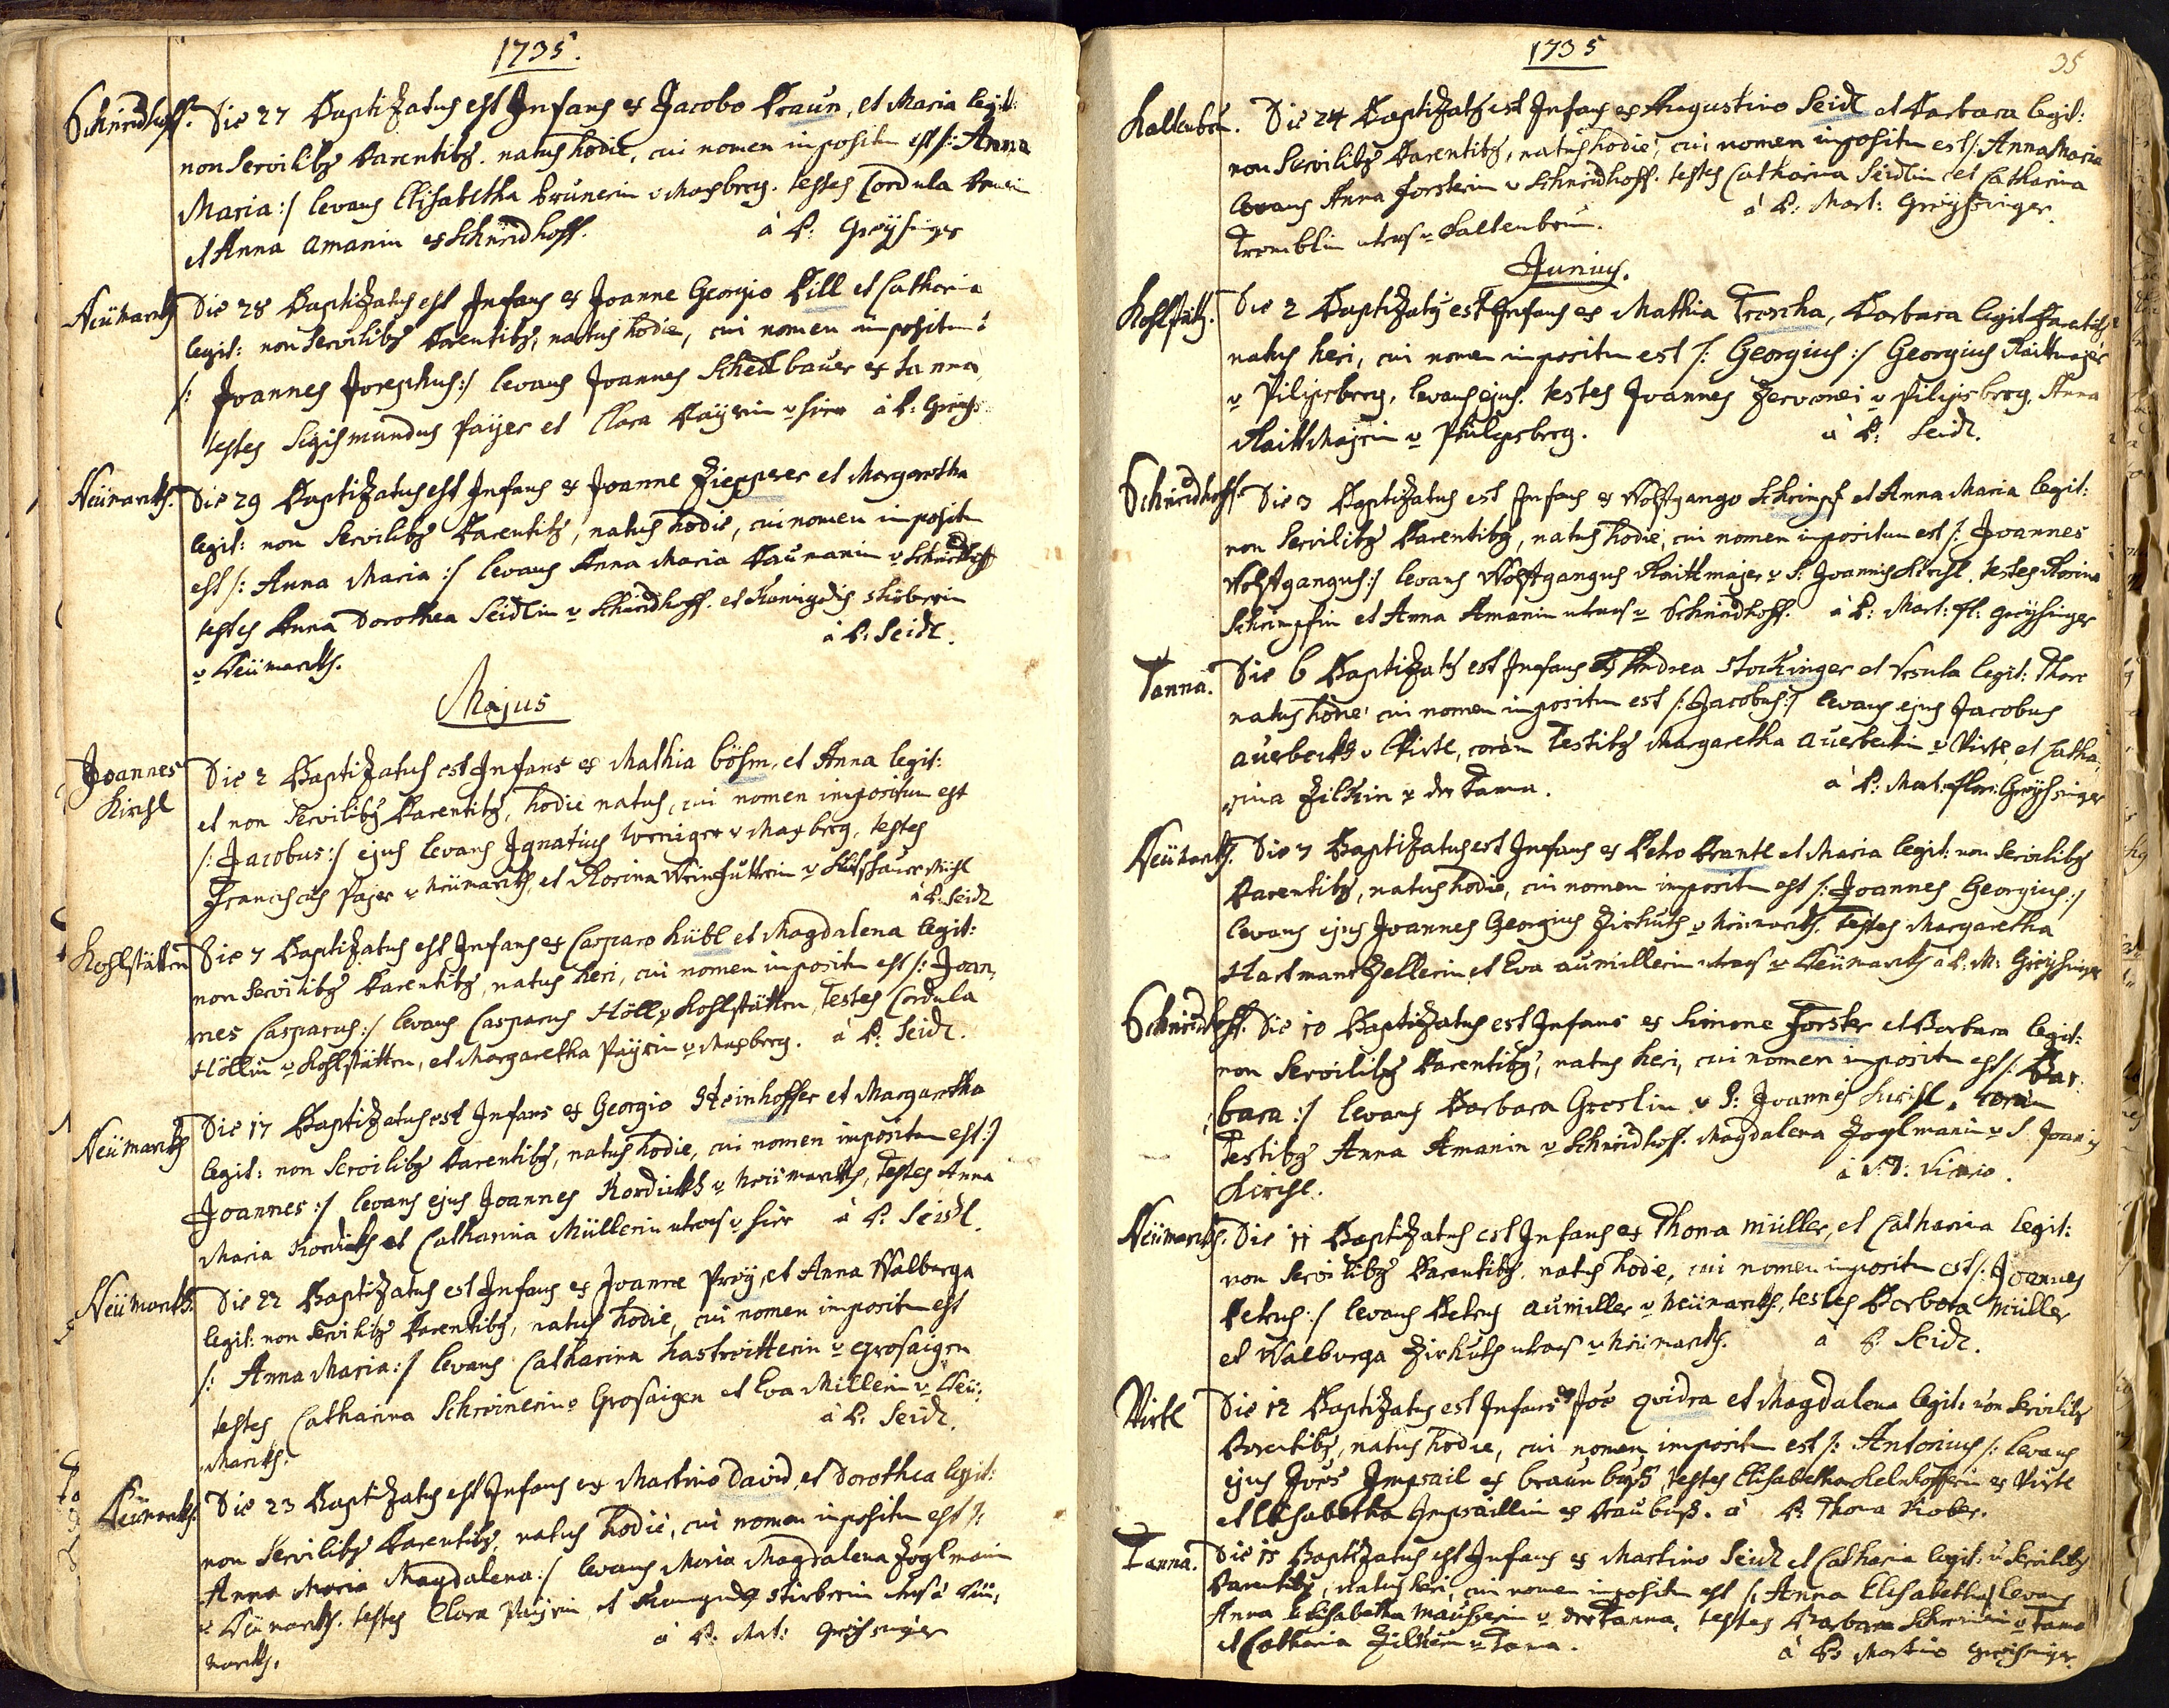 1735.
Schneidhoff. Die 27 Baptizatus est Infans ex Jacobo Braun, et Maria legit:
non Servilibg Parentibg. natus hodie, cui nomen impositu est /: Anna
Maria :/ levans Elisabetha Brunerin v Maxberg. testes Cordula
et Anna Amanin ex Schneidhoff. à P: Greysinger
Neümarckh Die 28 Baptizatus est Infans ex Joanne Georgio Pill et Catharia
legit: non Servilibg Parentibg, natus hodie, cui nomen impositum è
/: Joannes Josephus :/ levans Joannes Schedlbauer ex tanna,
testes Sigismundus Payer et Clara Payrin v hier à P: Greys:
Neümarckh. Die 29 Baptizatus est Infans ex Joanne Ziegger et Margaretha
legit: non Servilibg Parentibg, natus hodie, cui nomen impositu
est /: Anna Maria :/ levans Anna Maria Baumanin v Schneidhoff
testes Anna Dorothea Seidlin v Schneidhoff. et Kunigdis Stüberin
v Neümarckh. à P: Seidl.
Majus
Joannes Die 2 Baptizatus est Infans ex Mathia Böhm, et Anna legit:
Kirchl et non Servilibg Parentibg, hodie natus, cui nomen impositum est
/: Jacobus :/ ejus levans Ignatius Weniger v Maxberg, testes
Franciscus Payer v Neümarckh, et Rosina Weinfutterin v
à P: Seidl
Kohlstätten Die 7 Baptizatus est Infans ex Casparo Hübl et Magdalena legit:
non Servilibg Parentibg, natus heri, cui nomen impositu est /: Joan,
nes Casparus :/ levans Casparus Höll v Kohlstätten, testes Cordula
Höllin v Kohlstätten, et Margaretha Payrin v Maxberg. à P: Seidl.
Neümarckh Die 17 Baptizatus est Infans ex Georgio Steinhoffer et Margaretha
legit: non Servilibg Parentibg, natus hodie, cui nomen impositum est :/
Joannes :/ levans ejus Joannes Kordickh v Neümarckh, testes Anna
Maria Kordickh et Catharina Müllerin utraq v hier à P: Seidl.
Neümarckh. Die 22 Baptizatus est Infans ex Joanne Proÿ, et Anna Walburga
legit: non Servilibg Parentibg, natus hodie, cui nomen impositum est
/: Anna Maria :/ levans Catharina Hastreitterin v grosaigen
testes Catharina Schreinerin v Grosaigen et Eva Millerin v Neü:
Marckh. à P: Seidl.
Neümarckh. Die 23 Baptizatus est Infans ex Martino David, et Dorothea legit:
non Servilibg Parentibg, natus hodie, cui nomen impositum est /:
Anna Maria Magdalena :/ levans Maria Magdalena Zoglmanin
v Neümarckh. testes Clara Payrin, et Kunigund Stieberin utraq à Neü,
marckh. à P: Mart: Greysinger
1735 35
Kaltenbrū. Die 24 Baptizatg est Infans ex Augustino Seidl et Barbara legit:
non Servilibg Parentibg, natus hodie, cui nomen impositu est /: Anna Maria
levans Anna Forsterin v Schneidhoff. testes Catharina Seidlin et Catharina
Tremblin utraq v Kaltenbrun. à P: Mart: Greysinger.
Junius.
Kohlstätt. Die 2 Baptizatus est Infans ex Mathia Troscha, Barbara legit Parentibg
natus heri, cui nomen impositum est /: Georgius :/ Georgius Raittmajer
v Pilipsberg, levans ejus. testes Joannes Zerwonei v Pilipsberg, Anna
Raittmajrin v Philipsberg. à P: Seidl.
Schneidhoff. Die 3 Baptizatus est Infans ex Wolfgango Schrimpf et Anna Maria legit:
non Servilibg Parentibg, natus hodie, cui nomen impositum est /: Joannes
Wolfgangus :/ levans Wolfgangus Raittmajer v S: Joannis Kirchl. testes Rosina
Schrimpfin et Anna Amanin utraq v Schneidhoff. à P: Mart: Fl: Greysinger
Tanna. Die 6 Baptizatg est Infans ex Andrea Stockinger et Ursula legit: Thoro
natus hodie cui nomen impositum est /: Jacobus :/ levans ejus Jacobus
Auerbeckh v Virtl, coram Testibg Margaretha Auerbeckin v Virtl, et Catha,
rina Zilkin v der Tanna. à P: Mart: Flor: Greysinger
Neümarckh. Die 7 Baptizatus est Infans ex Petro Brantl et Maria legit: non Servilibg
Parentibg, natus hodie, cui nomen impositu est /: Joannes Georgius :/
levans ejus Joannes Georgius Zirkuth v Neümarckh. testes Margaretha
Hartmanszellerin et Eva aumillerin utraq v Neümarckh à P: M: Greysinger
Schneidhoff. Die 10 Baptizatus est Infans ex Simone Forster et Barbara legit:
non Servilibg Parentibg, natus heri, cui nomen impositu est /: Bar,
bara :/ levans Barbara Greslin v S: Joannis Kirchl, coram
Testibg Anna Amanin v Schneidhoff. Magdalena Zoglmanin v S Joanis
Kirchl. à P. D: Vicario.
Neümarckh. Die 11 Baptizatus est Infans ex Thoma Müller, et Catharina legit:
non Servilibg Parentibg. natus hodie, cui nomen impositu est /: Joannes
Petrus :/ levans Petrus Aumiller v Neümarckh., testes Barbara Müller
et Walburga Zirkuth utraq v Neümarckh. à P. Seidl.
Virtl Die 12 Baptizatus est Infans ex Joe Qvidra et Magdalena legit: non Servilibg
Parentibg, natus hodie, cui nomen impositu est /: Antonius /: levans
ejus Joes Impsail ex braunbuß, testes Elisabetha Kelnhofferin ex Virtl
et Elisabetha Impsaillin ex Braubuß. à P: Thoma Kober.
Tanna. Die 15 Baptizatus est Infans ex Martino Seidl et Catharia legit: ñ Servilibg
Parentibg, natus heri cui nomen impositu est /: Anna Elisabetha / levans
Anna Elisabetha Mauserin v der Tanna, testes Barbara v Tanna
et Catharia Zilkin v Tana. à P: Martino Greysinger.